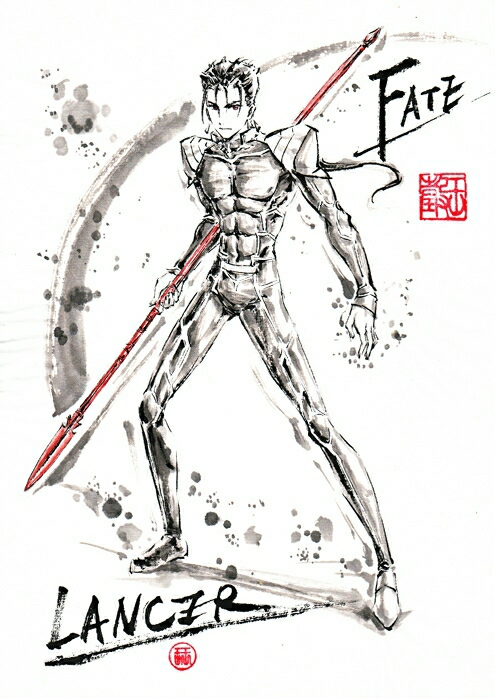 FATE
LANCER